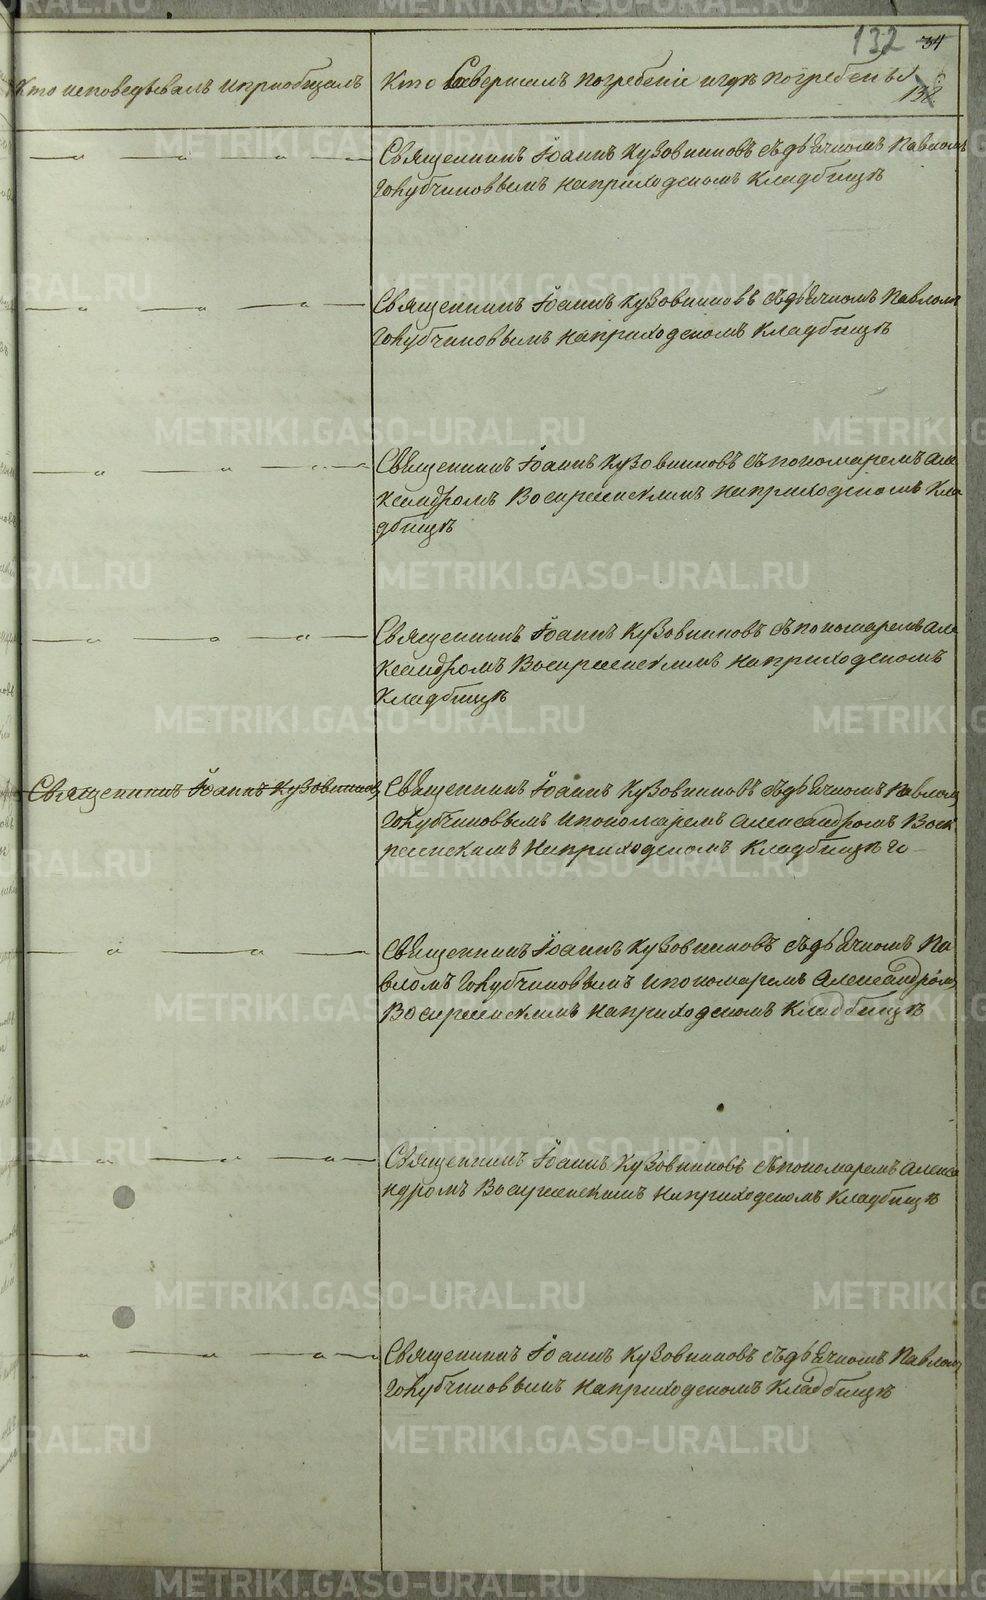 132 34
Кто исповедывалъ и приобщалъ
Кто Совершилъ погребеніе и гдѣ погребены
132
Священникъ Іоаннъ Кузовниковъ съ дьячкомъ Павломъ
Голубчиковымъ на приходскомъ Кладбищѣ
Священникъ Іоаннъ Кузовниковъ съ дьячкомъ Павломъ
Голубчиковымъ на приходскомъ Кладбищѣ
Священникъ Іоаннъ Кузовниковъ съ пономаремъ Але
ксандромъ Воскресенскимъ на приходскомъ Кла
дбищѣ
Священникъ Іоаннъ Кузовниковъ съ пономаремъ Але
ксандромъ Воскресенскимъ на приходскомъ
Кладбищѣ
Священникъ Іоаннъ Кузовниковъ
Священникъ Іоаннъ Кузовниковъ съ дьячкомъ Павломъ
Голубчиковымъ и пономаремъ Александромъ Воск
ресенскимъ на приходскомъ Кладбищѣ
Священникъ Іоаннъ Кузовниковъ съ дьячкомъ Па
вломъ Голубчиковымъ и пономаремъ Александромъ
Воскресенскимъ на приходскомъ Кладбищѣ
Священникъ Іоаннъ Кузовниковъ съ пономаремъ Алекса
ндромъ Воскресенскимъ на приходскомъ Кладбищѣ
Священникъ Іоаннъ Кузовниковъ съ дьячкомъ Павломъ
Голубчиковымъ на приходскомъ Кладбищѣ
METRIKI.GASO-URAL.RU